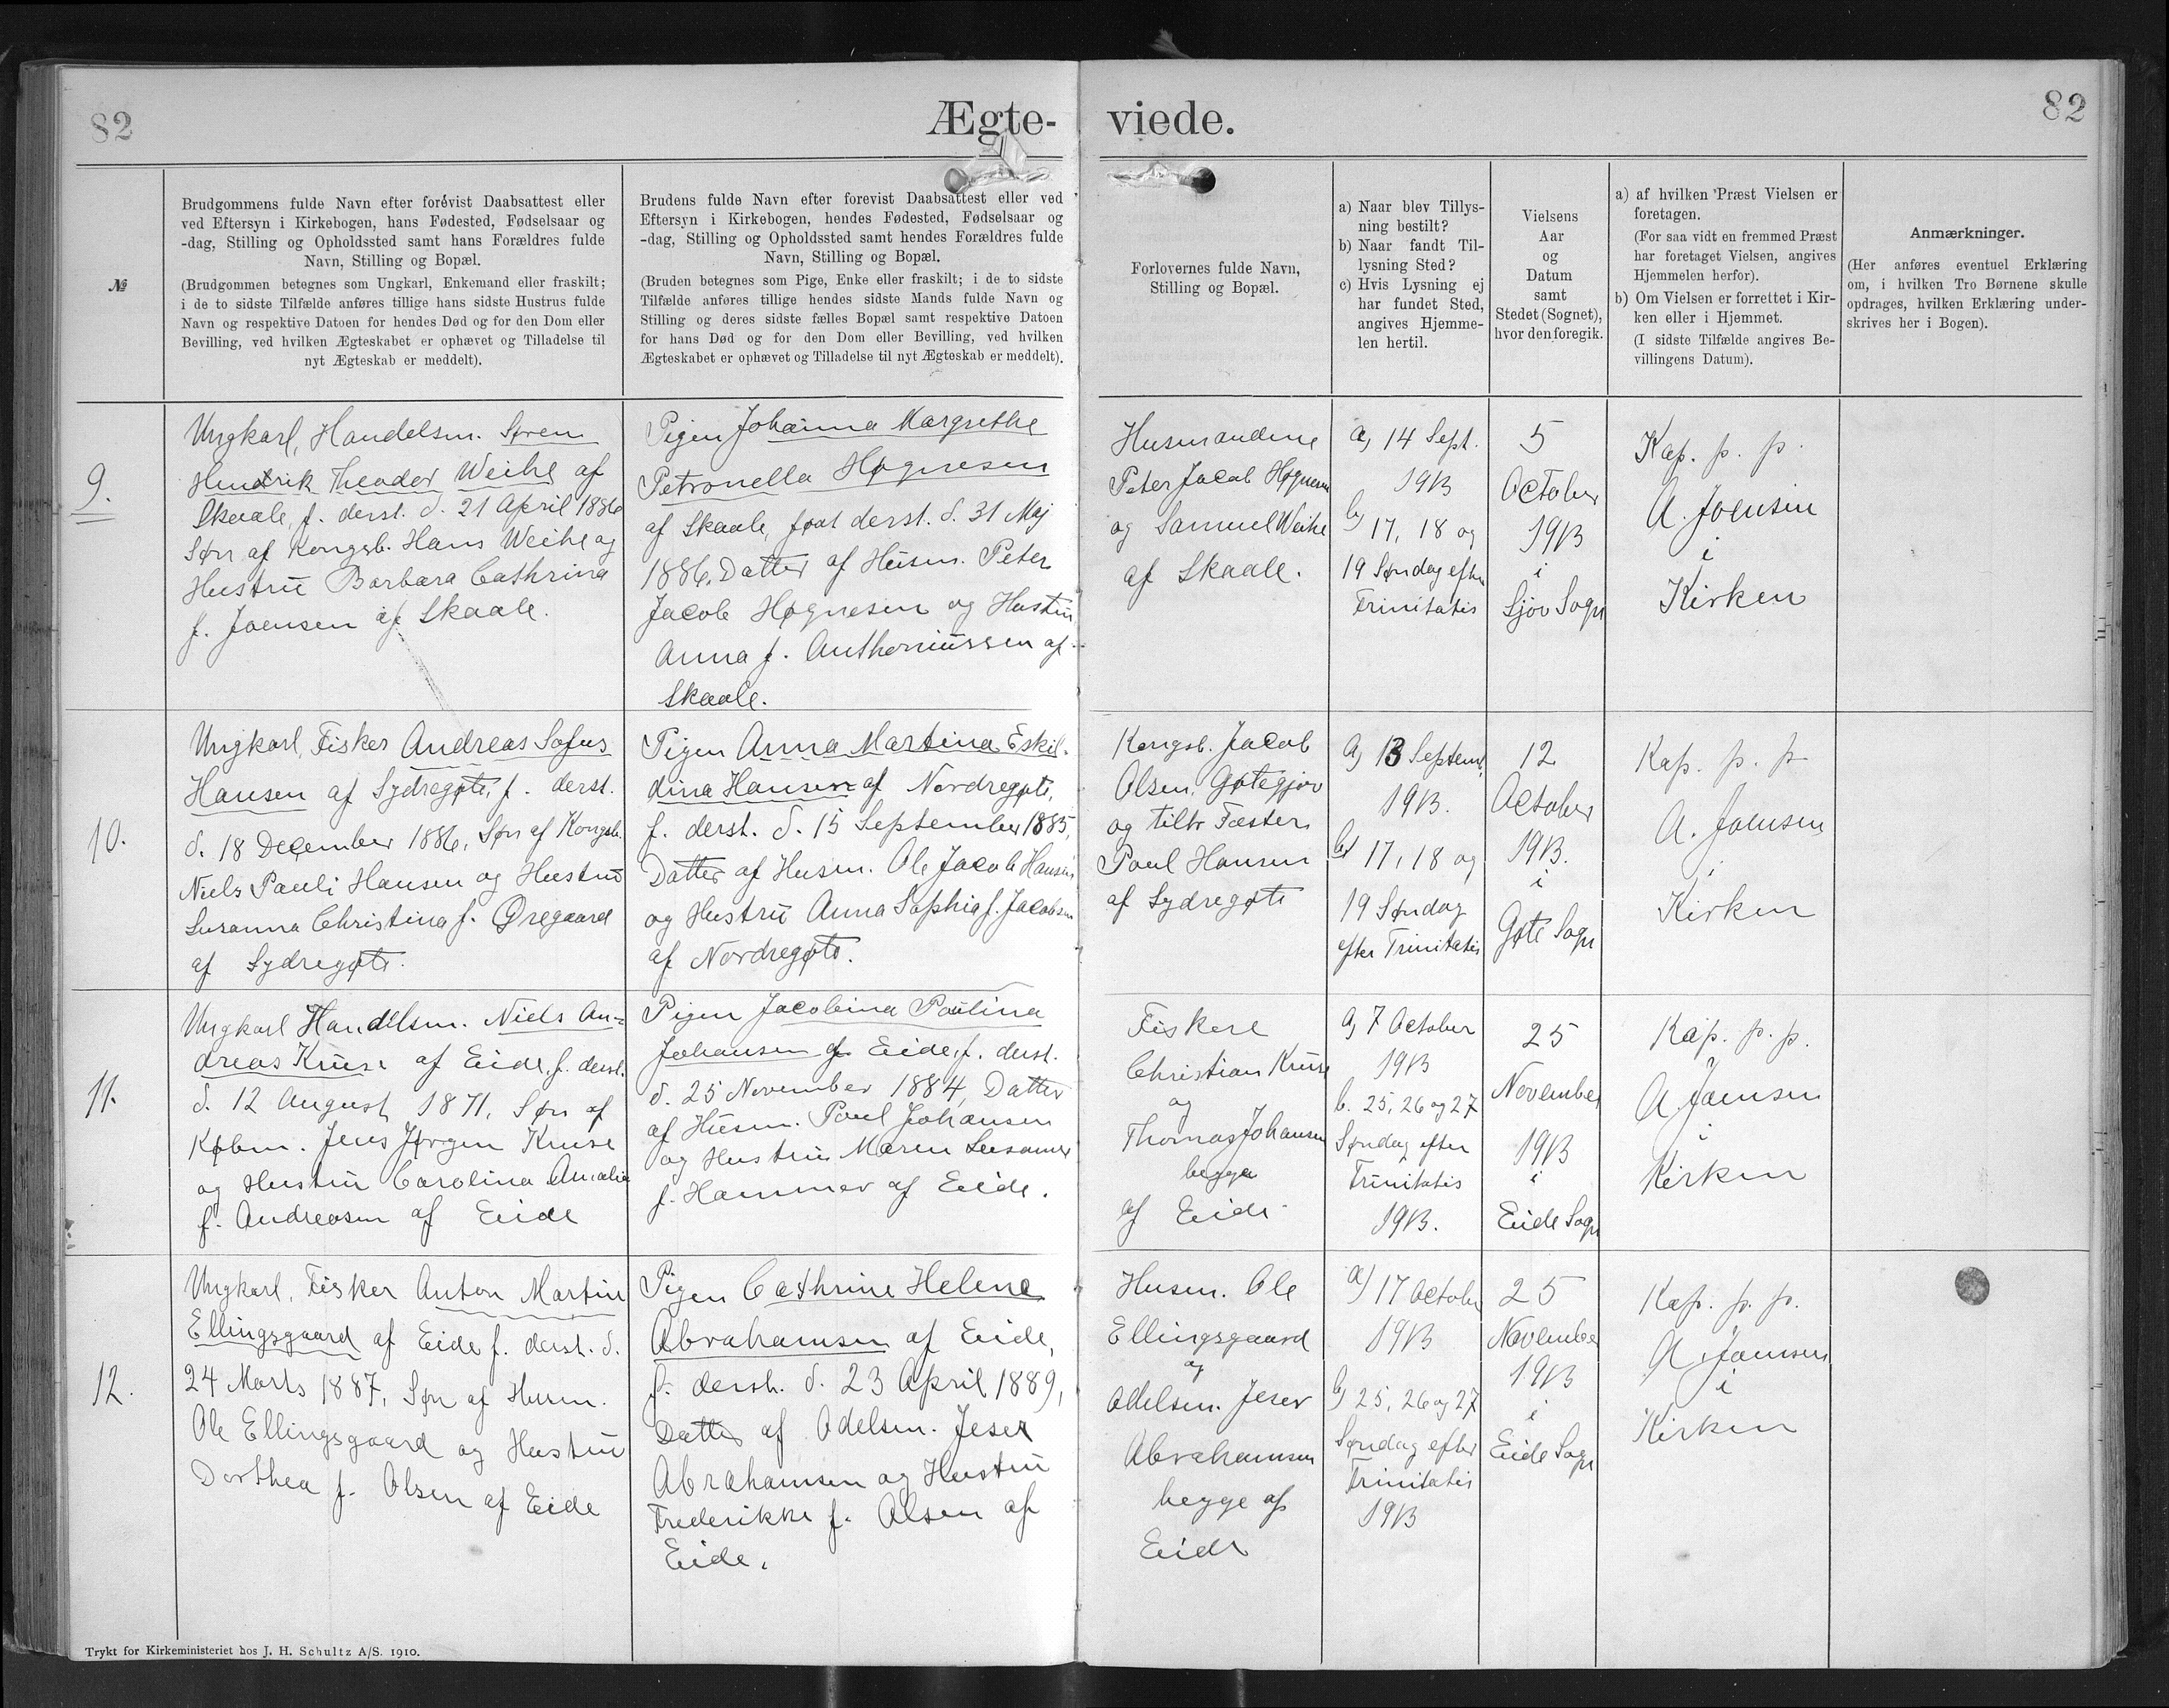 82
Ægte-
viede.
82
№
Brudgommens fulde Navn efter forevist Daabsattest eller
ved Eftersyn i Kirkebogen, hans Fødested, Fødselsaar og
-dag, Stilling og Opholdssted samt hans Forældres fulde
Navn, Stilling og Bopæl.
(Brudgommen betegnes som Ungkarl, Enkemand eller fraskilt;
i de to sidste Tilfælde anføres tillige hans sidste Hustrus fulde
Navn og respektive Datoen for hendes Død og for den Dom eller
Bevilling, ved hvilken Ægteskabet er ophævet og Tilladelse til
nyt Ægteskab er meddelt).
Brudens fulde Navn efter forevist Daabsattest eller ved
Eftersyn i Kirkebogen, hendes Fødested, Fødselsaar og
-dag, Stilling og Opholdssted samt hendes Forældres fulde
Navn, Stilling og Bopæl.
(Bruden betegnes som Pige, Enke eller fraskilt; i de to sidste
Tilfælde anføres tillige hendes sidste Mands fulde Navn og
Stilling og deres sidste fælles Bopæl samt respektive Datoen
for hans Død og for den Dom eller Bevilling, ved hvilken
Ægteskabet er ophævet og Tilladelse til nyt Ægteskab er meddelt).
Forlovernes fulde Navn,
Stilling og Bopæl.
a) Naar blev Tillys-
ning bestilt?
b) Naar fandt Til-
lysning Sted?
c) Hvis Lysning ej
har fundet Sted,
angives Hjemme-
len hertil.
Vielsens
Aar
og
Datum
samt
Stedet (Sognet),
hvor den foregik.
a) af hvilken Præst Vielsen er
foretagen.
(For saa vidt en fremmed Præst
har foretaget Vielsen, angives
Hjemmelen herfor).
b) Om Vielsen er forrettet i Kir-
ken eller i Hjemmet.
(I sidste Tilfælde angives Be-
villingens Datum).
Anmærkninger.
(Her anføres eventuel Erklæring
om, i hvilken Tro Børnene skulle
opdrages, hvilken Erklæring under-
skrives her i Bogen).
9.
Ungkarl, Handelsm. Søren
Hendrik Theodor Weihe af
Skaale, f. derst. d. 21 April 1886
Søn af Kongsb. Hans Weihe og
Hustrü Barbara Cathrina
f. Joensen af Skaale.
Pigen Johanna Margrethe
Petronella Høgnesen
af Skaale, født derst. d. 31 Maj
1886, Datter af Husm. Peter
Jacob Høgnesen og Hustrü
Anna f. Anthoniussen af
Skaale.
Husmændene
Peter Jacob Høgnesen
og Samuel Weihe
af Skaale.
a, 14 Sept.
1913
b, 17, 18 og
19 Søndag efter
Trinitatis
5
October
1913
i
Sjov Sogn
Kap. p. p.
A. Joensen
i
Kirken
10.
Ungkarl, Fisker Andreas Sofus
Hansen af Sydregøte, f. derst.
d. 18 December 1886, Søn af Kongsb.
Niels Pauli Hansen og Hustrü
Susanna Christina f. Øregaard
af Sydregøte.
Pigen Anna Martina Eskil-
dina Hansen af Nordregøte,
f. derst. d. 15 September 1885,
Datter af Husm. Ole Jacob Hansen
og Hustrü Anna Sophia f. Jacobsen
af Nordregøte.
Kongsb. Jacob
Olsen, Gøtegjov
og tilhv Fæster
Poul Hansen
af Sydregøte
a, 13 Septemb.
1913.
b, 17, 18 og
19 Søndag
efter Trinitatis
12
October
1913.
i
Gøte Sogn
Kap. p. p
A. Joensen
i
Kirken
11.
Ungkarl Handelsm. Niels An-
dreas Kruse af Eide, f. derst.
d. 12 August 1871, Søn af
Købm. Jens Jørgen Kruse
og Hustrü Carolina Amalia
f. Andreasen af Eide
Pigen Jacobina Paulina
Johansen af Eide, f. derst.
d. 25 November 1884, Datter
af Husm. Poul Johansen
og Hustrü Maren Susanna
f. Hammer af Eide.
Fiskere
Christian Kruse
og
Thomas Johansen
begge
af Eide
a, 7 October
1913
b. 25, 26 og 27
Søndag efter
Trinitatis
1913.
25
November
1913
i
Eide Sogn
Kap. p. p.
A. Joensen
i
Kirken
12.
Ungkarl, Fisker Anton Martin
Ellingsgaard af Eide f. derst. d.
24 Marts 1887, Søn af Husm.
Ole Ellingsgaard og Hustrü
Dorthea f. Olsen af Eide
Pigen Cathrine Helene
Abrahamsen af Eide,
f. derst. d. 23 April 1889,
Datter af Odelsm. Jeser
Abrahamsen og Hustrü
Frederikke f. Olsen af
Eide.
Husm. Ole
Ellingsgaard
og
Odelsm. Jeser
Abrahamsen
begge af
Eide
a) 17 October
1913
b) 25, 26 og 27
Søndag efter
Trinitatis
1913
25
November
1913
i
Eide Sogn
Kap. p. p.
A. Joensen
i
Kirken
Trykt for Kirkeministeriet hos J. H. Schultz A/S. 1910.